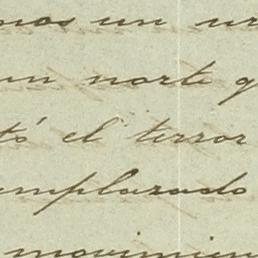 nos un ur
un norte q
tó el terror
emplazado
movimien